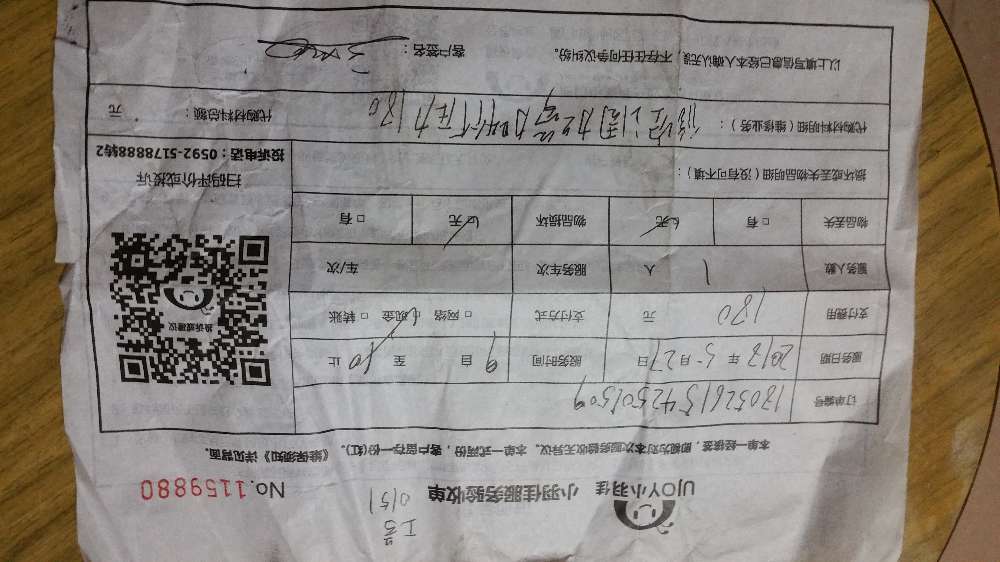 UJOY小羽佳 小羽佳服务验收单 No.1159880
工号 0151
本单一经接签，即视为对本次服务验收无异议。本单一式两份，客户留存一份(红)。《维保须知》详见背面。
订单编号
服务日期 2018年5月27日 服务时间 9自 至10止
支付费用 180元 支付方式 □网络 □现金 □转账
服务人数 1人 服务车次 车/次
物品丢失 □有 □无 物品损坏 □无 □有
损坏或丢失物品明细（没有可不填）：
投诉或建议
扫码评价或投诉
投诉电话：0592-5178888转2
代购材料明细（维修业务）： 180
代购材料总额： 元
以上填写信息已经本人确认无误，不存在任何争议纠纷。 客户签名：